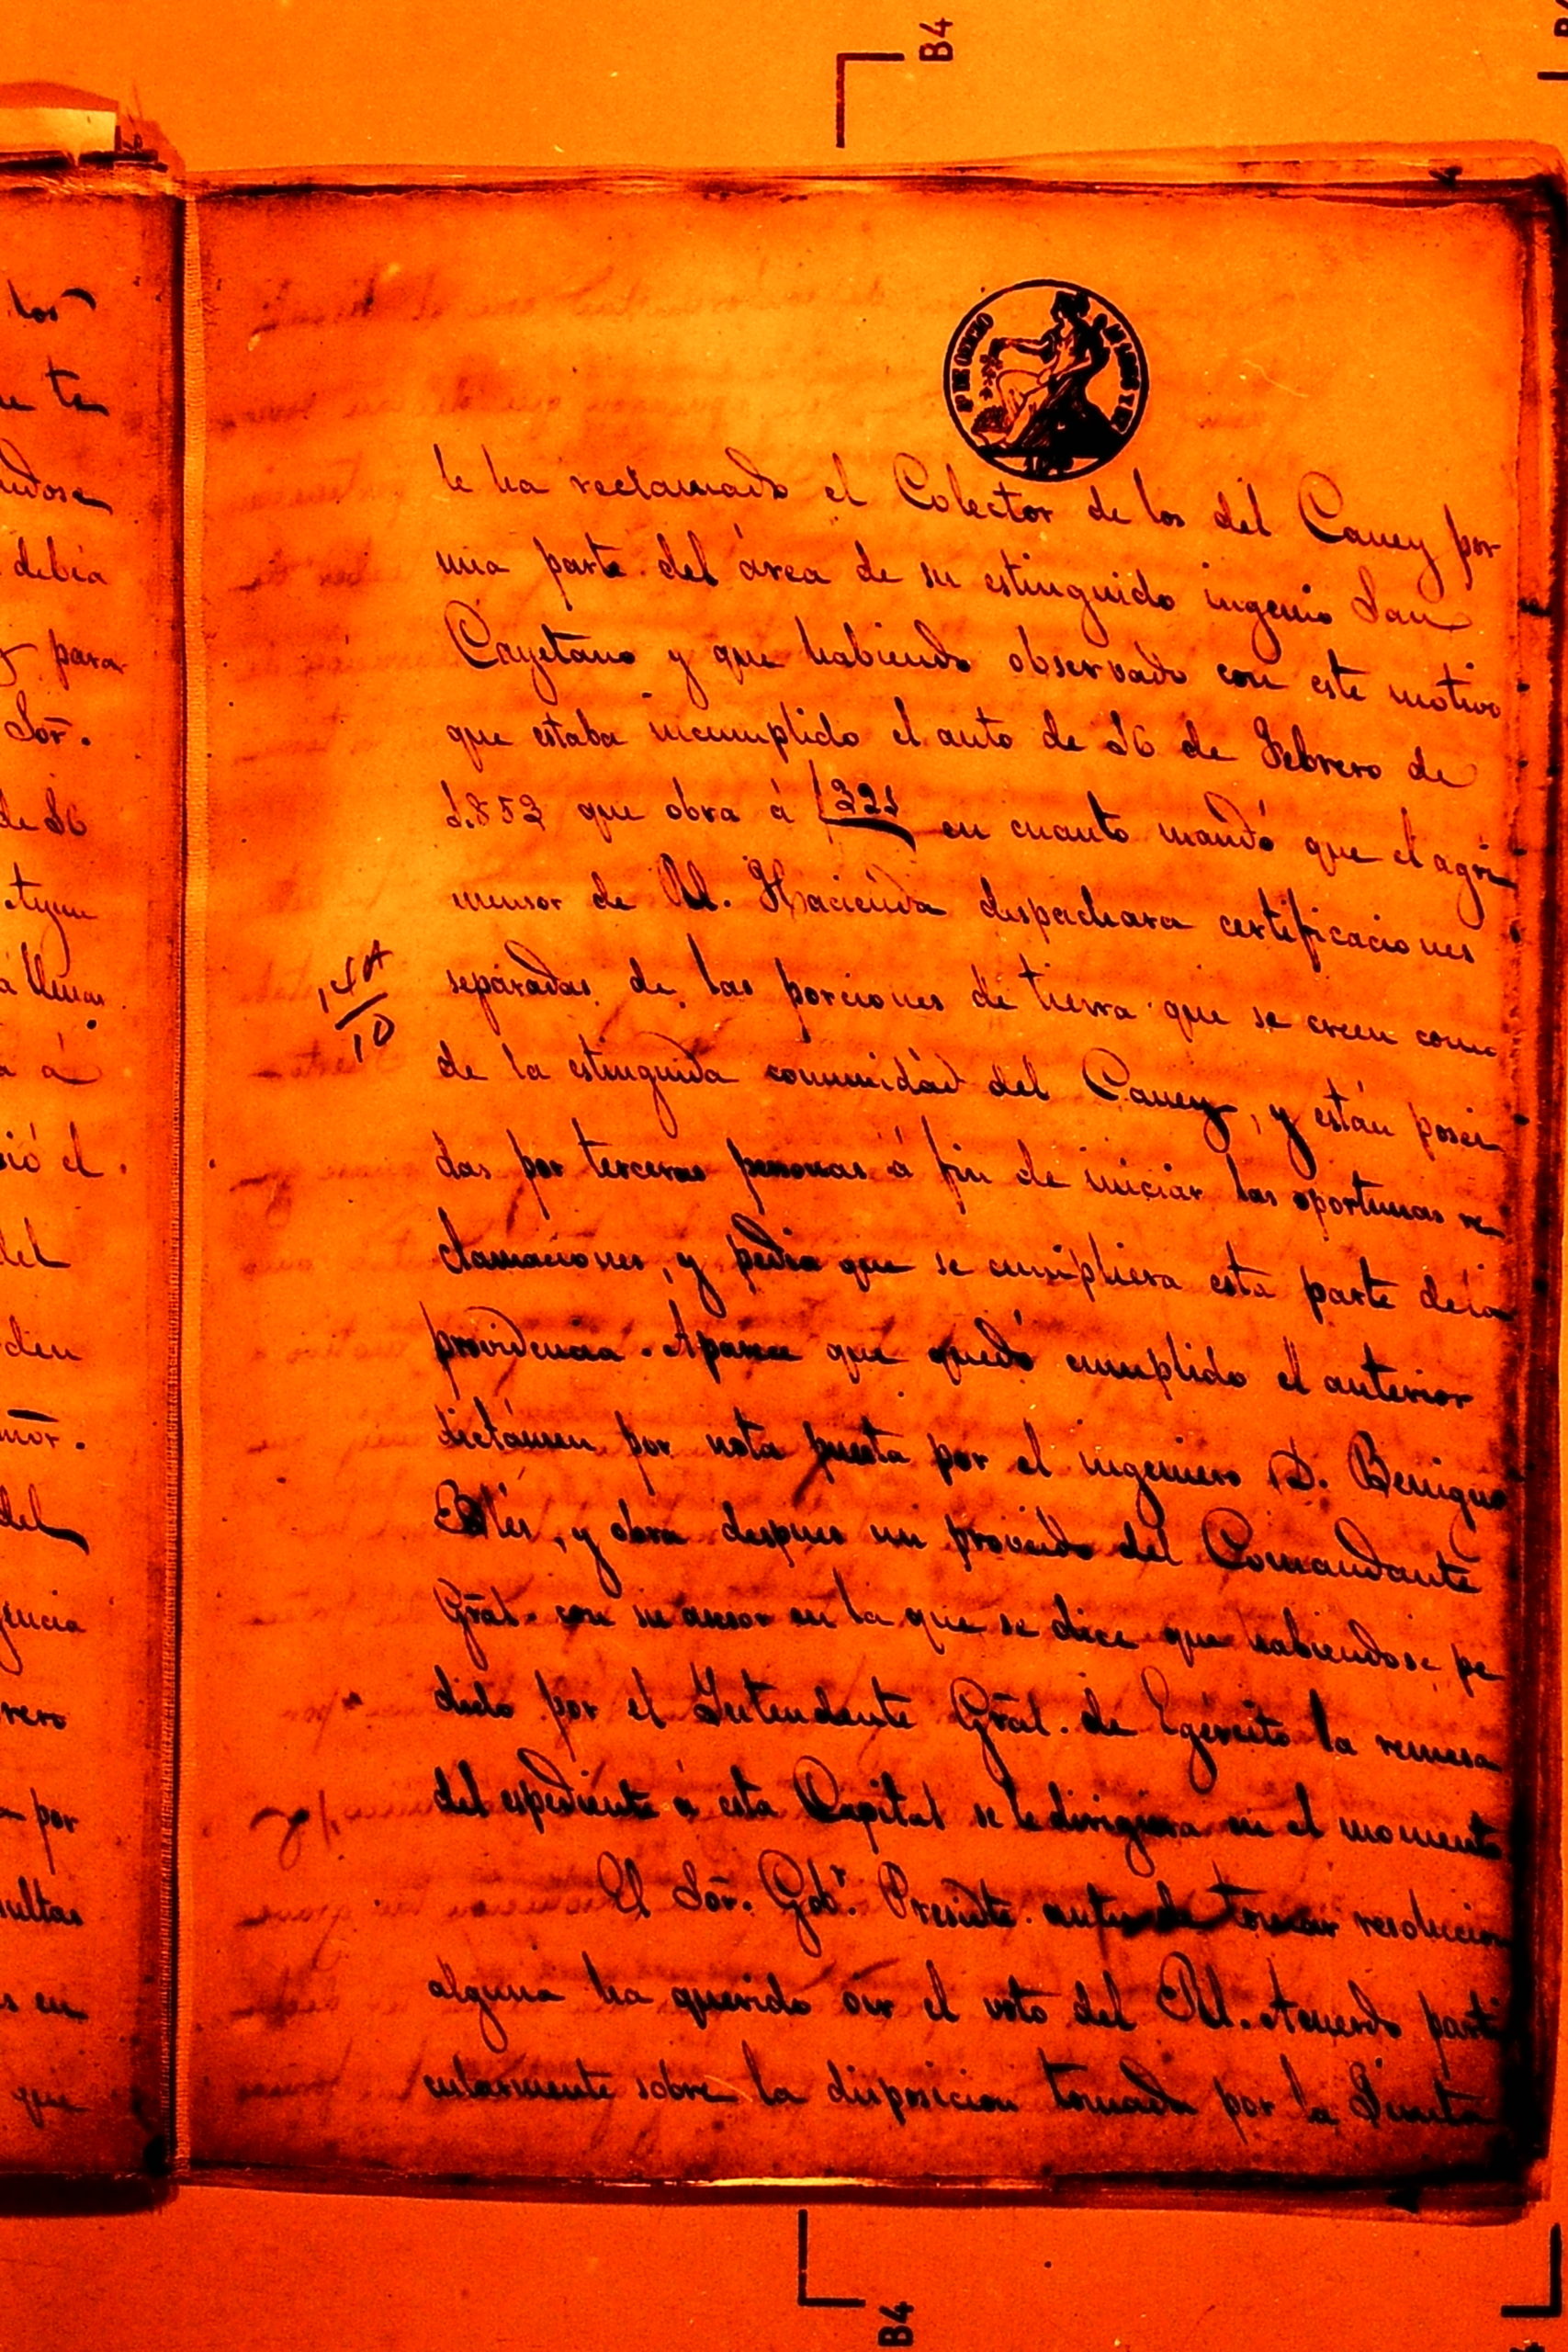 B4
los
debia
para
Sōr.
de 26
á
el
del
den
del
gencia
rero
por
sultas
en
que
P. DE OFICIO
le ha reclamado el Colector de los del Caney por
una parte del área de su estinguido ingenio San
Cayetano y que habiendo observado con este motivo
que estaba incumplido el auto de 26 de Febrero de
1.853 que obra á f 321 en cuanto mandó que el agri
mensor de Rl. Hacienda despachara certificaciones
separadas de las porciones de tierra que se creen como
de la estinguida comunidad del Caney, y están posei
das por terceras personas á fin de iniciar las oportunas re
clamaciones, y pedia que se cumpliera esta parte de la
providencia. Aparece que quedó cumplido el anterior
dictámen por nota puesta por el ingeniero D. Benigno
y obra despues un proveido del Comandante
Grāl. con su asesor en la que se dice que habiendose pe
dido por el Intendente Grāl. de Egército la remesa
del espediente á esta Capital se le dirigiera en el momento
El Sōr. Gobr. Presidte. antes de tomar resolucion
alguna ha querido oir el voto del Rl. Acuerdo parti
cularmente sobre la disposicion tomada por la Junta
10
B4